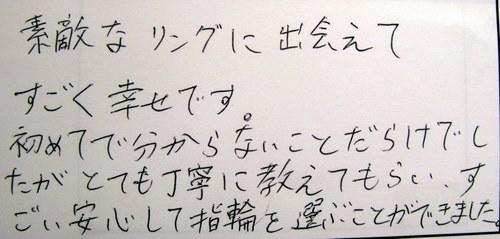 素敵なリングに出会えて
すごく幸せです。
初めてで分からないことだらけでし
たがとても丁寧に教えてもらい、す
ごい安心して指輪を選ぶことができました